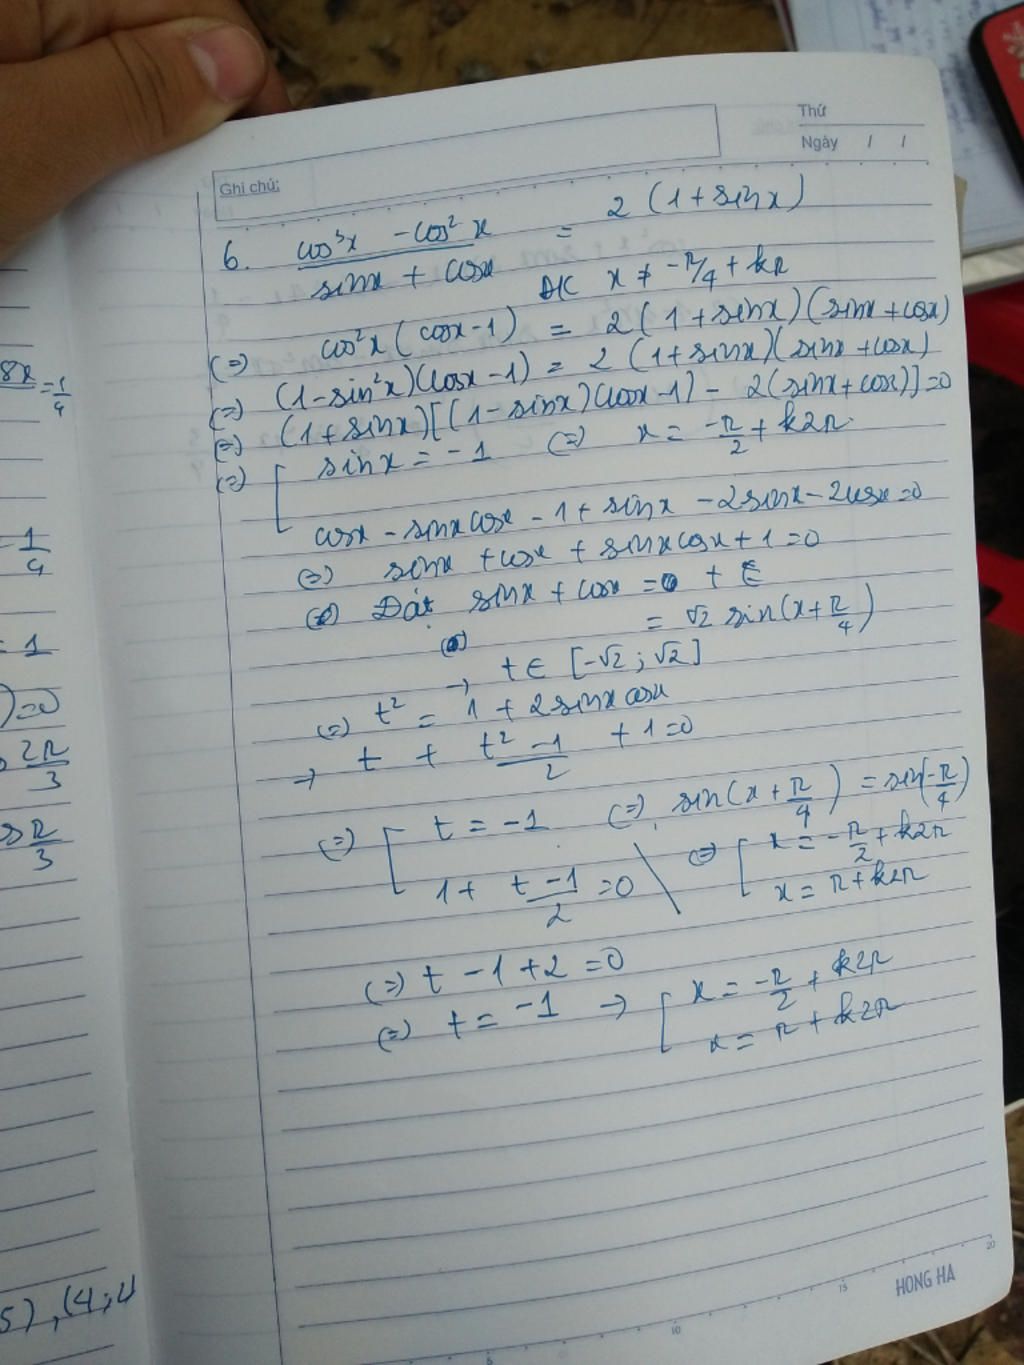 Thứ
Ngày / /
Ghi chú:
6. cos³x - cos²x / sinx + cosx = 2 (1 + sinx)
ĐK x ≠ -π/4 + kπ
(=) cos²x (cosx - 1) = 2 (1 + sinx) (sinx + cosx)
(=) (1 - sin²x)(cosx - 1) = 2 (1 + sinx)(sinx + cosx)
(=) (1 + sinx)[(1 - sinx)(cosx - 1) - 2(sinx + cosx)] = 0
(=) [ sinx = -1 (=) x = -π/2 + k2π
cosx - sinxcosx - 1 + sinx - 2sinx - 2cosx = 0
(=) sinx + cosx + sinxcosx + 1 = 0
Đặt sinx + cosx = t
= √2 sin(x + π/4)
→ t ∈ [-√2 ; √2]
(=) t² = 1 + 2sinxcosx
=> t + t² - 1 / 2 + 1 = 0
(=) [ t = -1 (=) sin(x + π/4) = sin(-π/4)
1 + t - 1 / 2 = 0
(=) [ x = -π/2 + k2π
x = π + k2π
(=) t - 1 + 2 = 0
(=) t = -1 → [ x = -π/2 + k2π
x = π + k2π
8x = 1/4
1/4
= 1
) = 0
2π/3
π/3
5), (4; 4
HONG HA
5 10 15 20